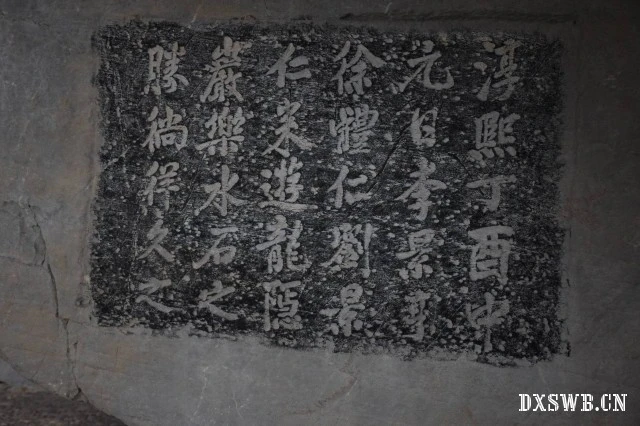 淳熙丁酉中
元日李景亨
徐體仁劉景
仁來遊龍隱
巖樂水石之
勝徜徉久之
DXSWB.CN